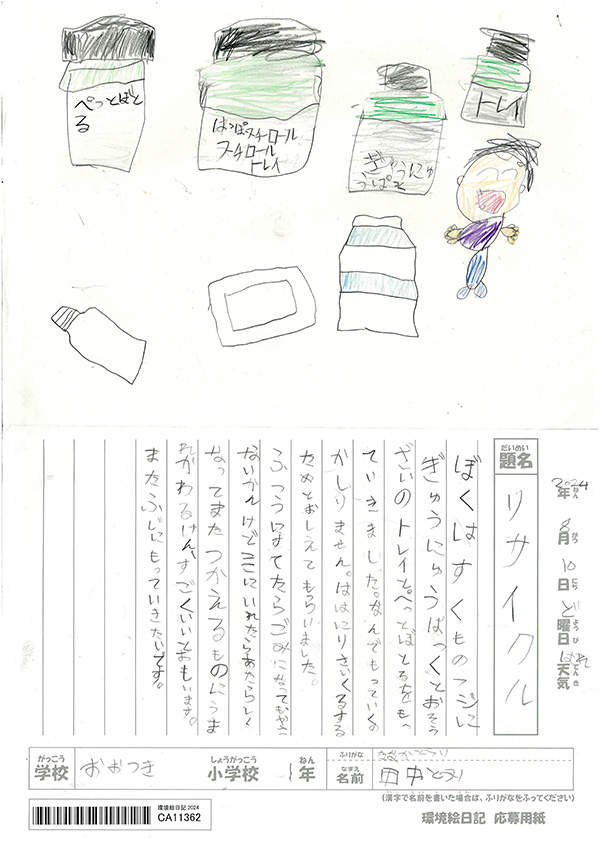 ぺっとぼと
る
はっぽスチロール
スチロール
トレイ
ぎゅうにゅ
うぱっく
トレイ
2024年
ねん
8月
がつ
10日
にち
ど曜日
ようび
はれ
天気
てんき
だいめい
題名
リサイクル
ぼくはすくものフジに
ぎゅうにゅうぱっくとおそう
ざいのトレイとぺっとぼとるをもっ
ていきました。なんでもっていくの
かしりません。ははにりさいくるする
ためとおしえてもらいました。
ふつうにすてたらごみになってもやさ
ないかんけどここにいれたらあたらしく
なってまたつかえるものにうま
れかわるけん、すごくいいとおもいます。
またふじにもっていきたいです。
がっこう
学校
おおつき
しょうがっこう
小学校
1
ねん
年
ふりがな
なまえ
名前
田中
(漢字で名前を書いた場合は、ふりがなをふってください)
環境絵日記2024
CA11362
環境絵日記 応募用紙